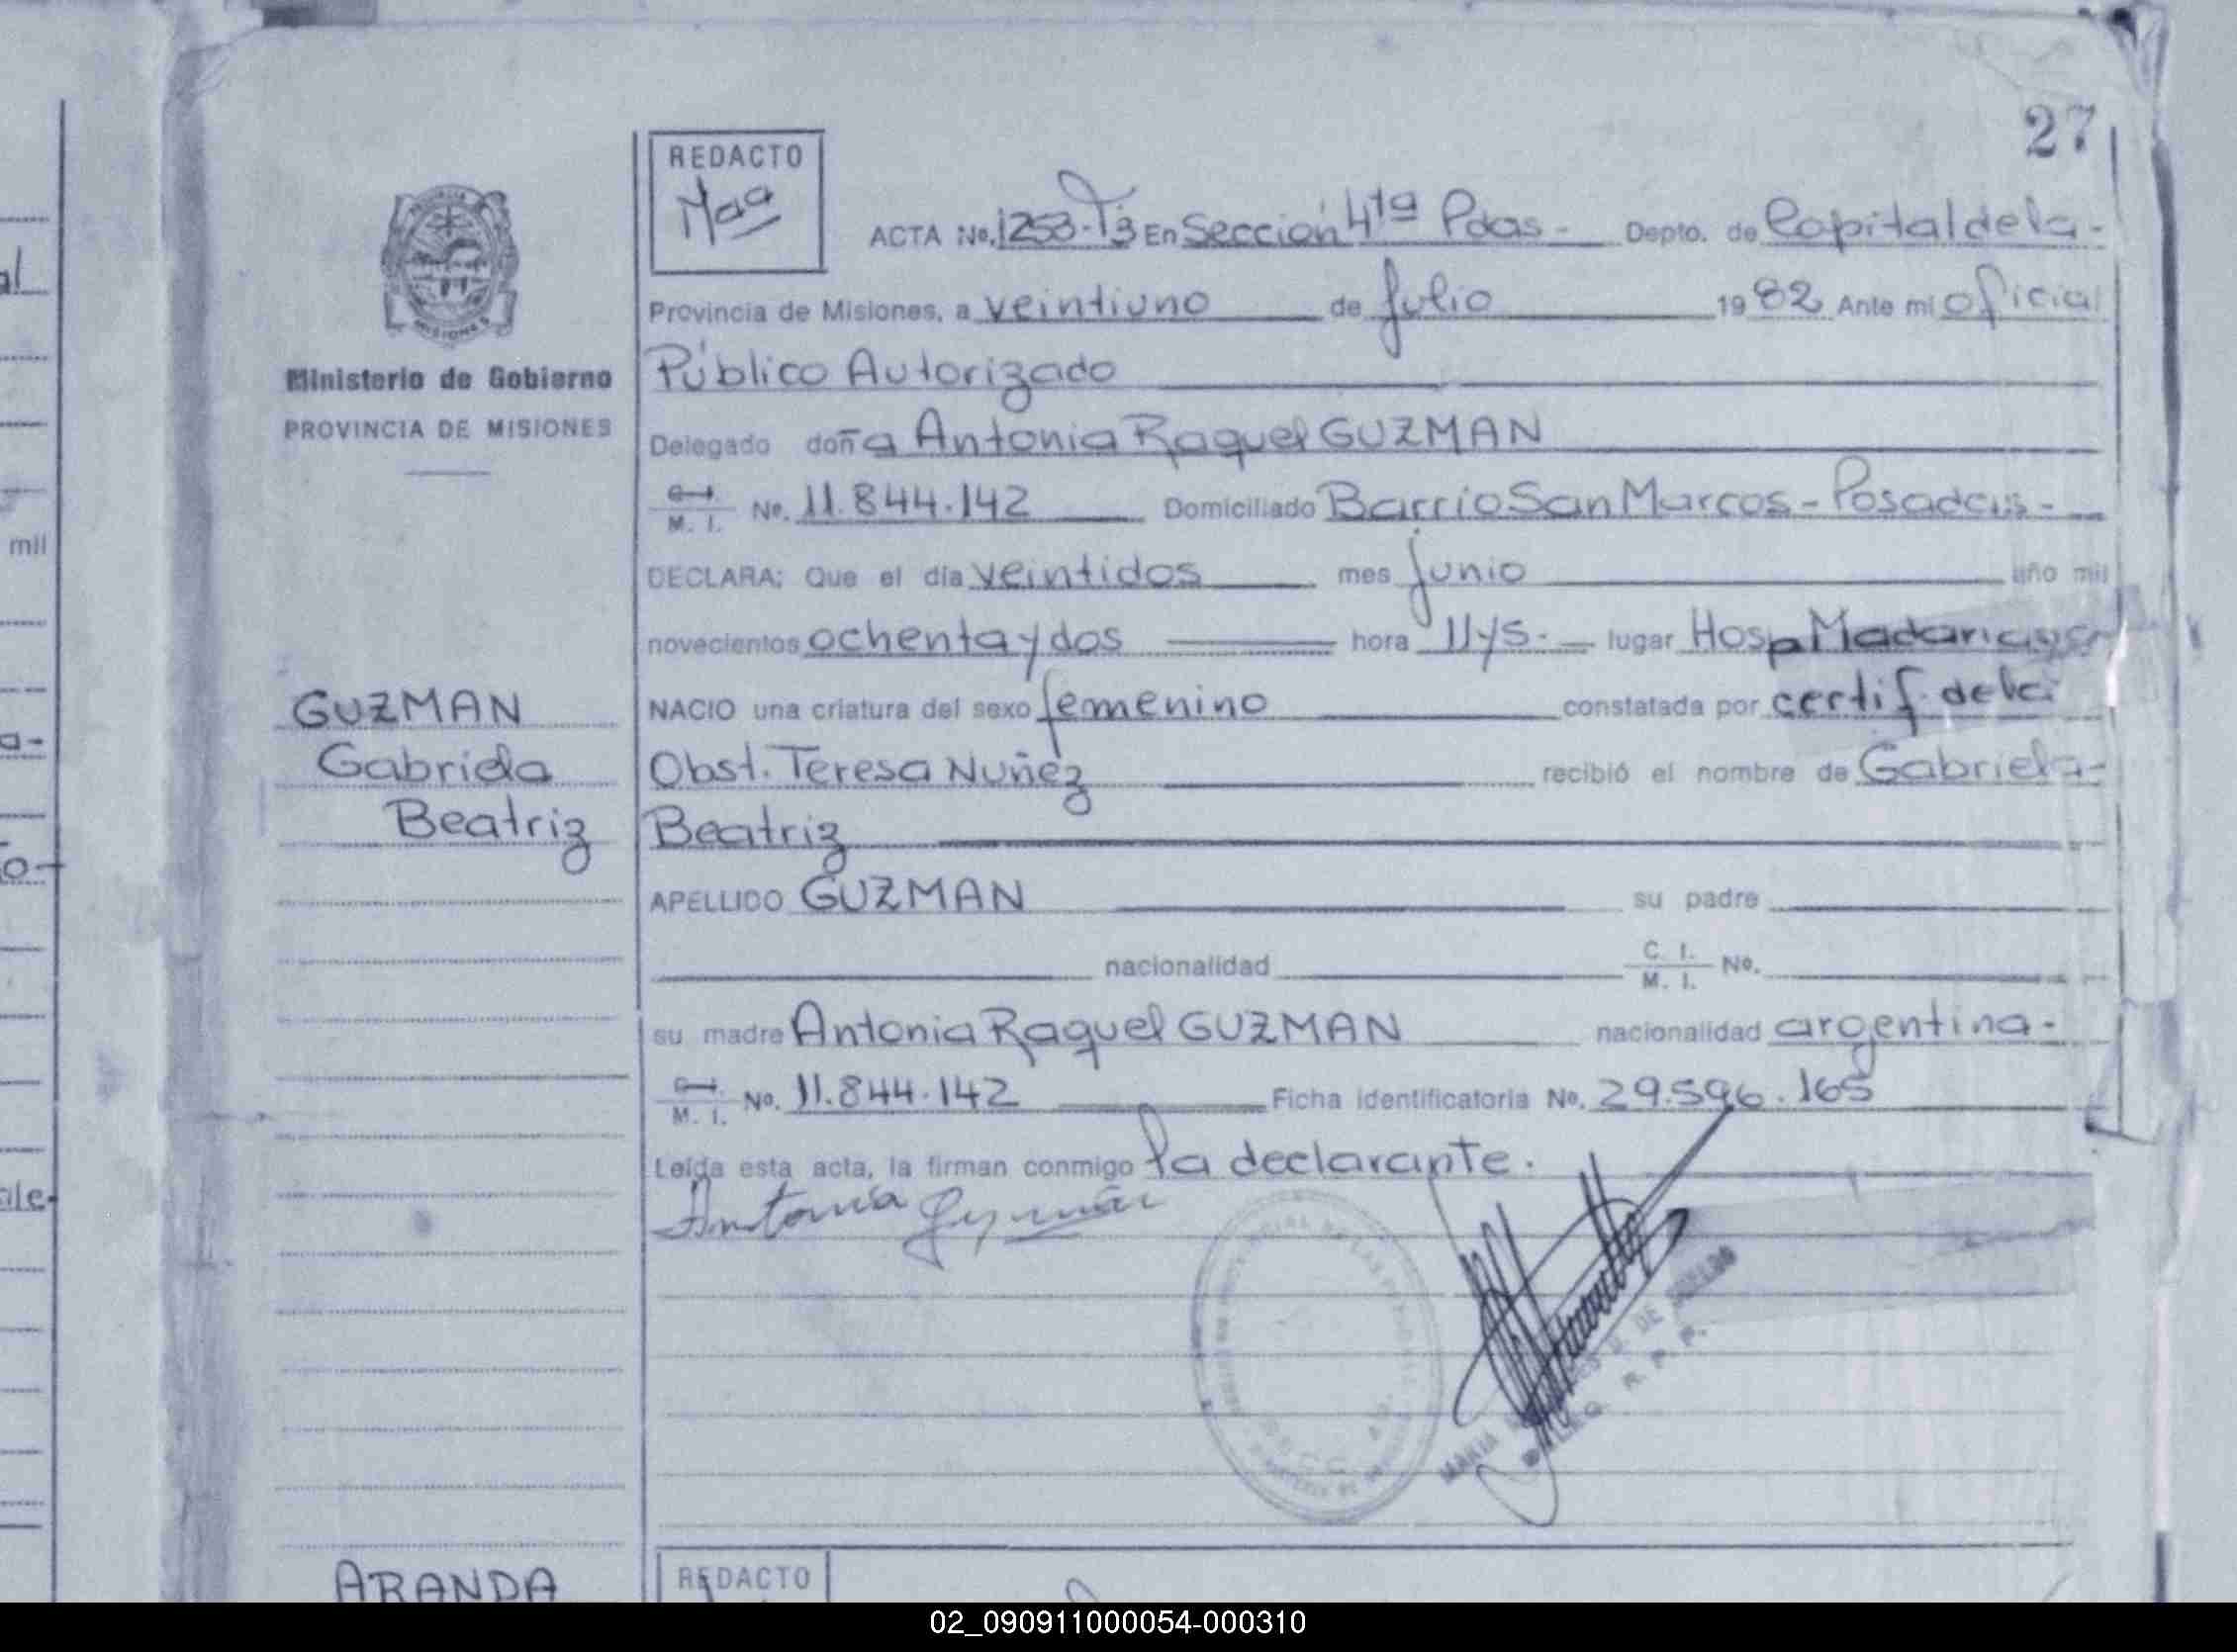 27
REDACTO
Maa
ACTA No. 1253-T3 En Sección 4ta Pdas- Depto. de Capital dela-
Provincia de Misiones, a veintiuno de julio 1982 Ante mi oficial
Público Autorizado
Delegado doña Antonia Raquel GUZMAN
M. I. No. 11.844.142 Domiciliado Barrio San Marcos - Posadas-
DECLARA; Que el día veintidos mes junio año mil
novecientos ochenta y dos hora 11y5.- lugar Hosp Madariaga
NACIO una criatura del sexo femenino constatada por certif. dela
Obst. Teresa Nuñez recibió el nombre de Gabriela-
Beatriz
APELLIDO GUZMAN su padre
nacionalidad C. I. M. I. No.
su madre Antonia Raquel GUZMAN nacionalidad argentina-
M. I. No. 11.844.142 Ficha identificatoria No. 29.596.165
Leída esta acta, la firman conmigo la declarante.
Antonia Guzmán
MISIONES
Ministerio de Gobierno
PROVINCIA DE MISIONES
GUZMAN
Gabriela
Beatriz
ARANDA
REDACTO
al
mil
a-
o-
ale.
MARIA
DE
R. P. P.
02_090911000054-000310